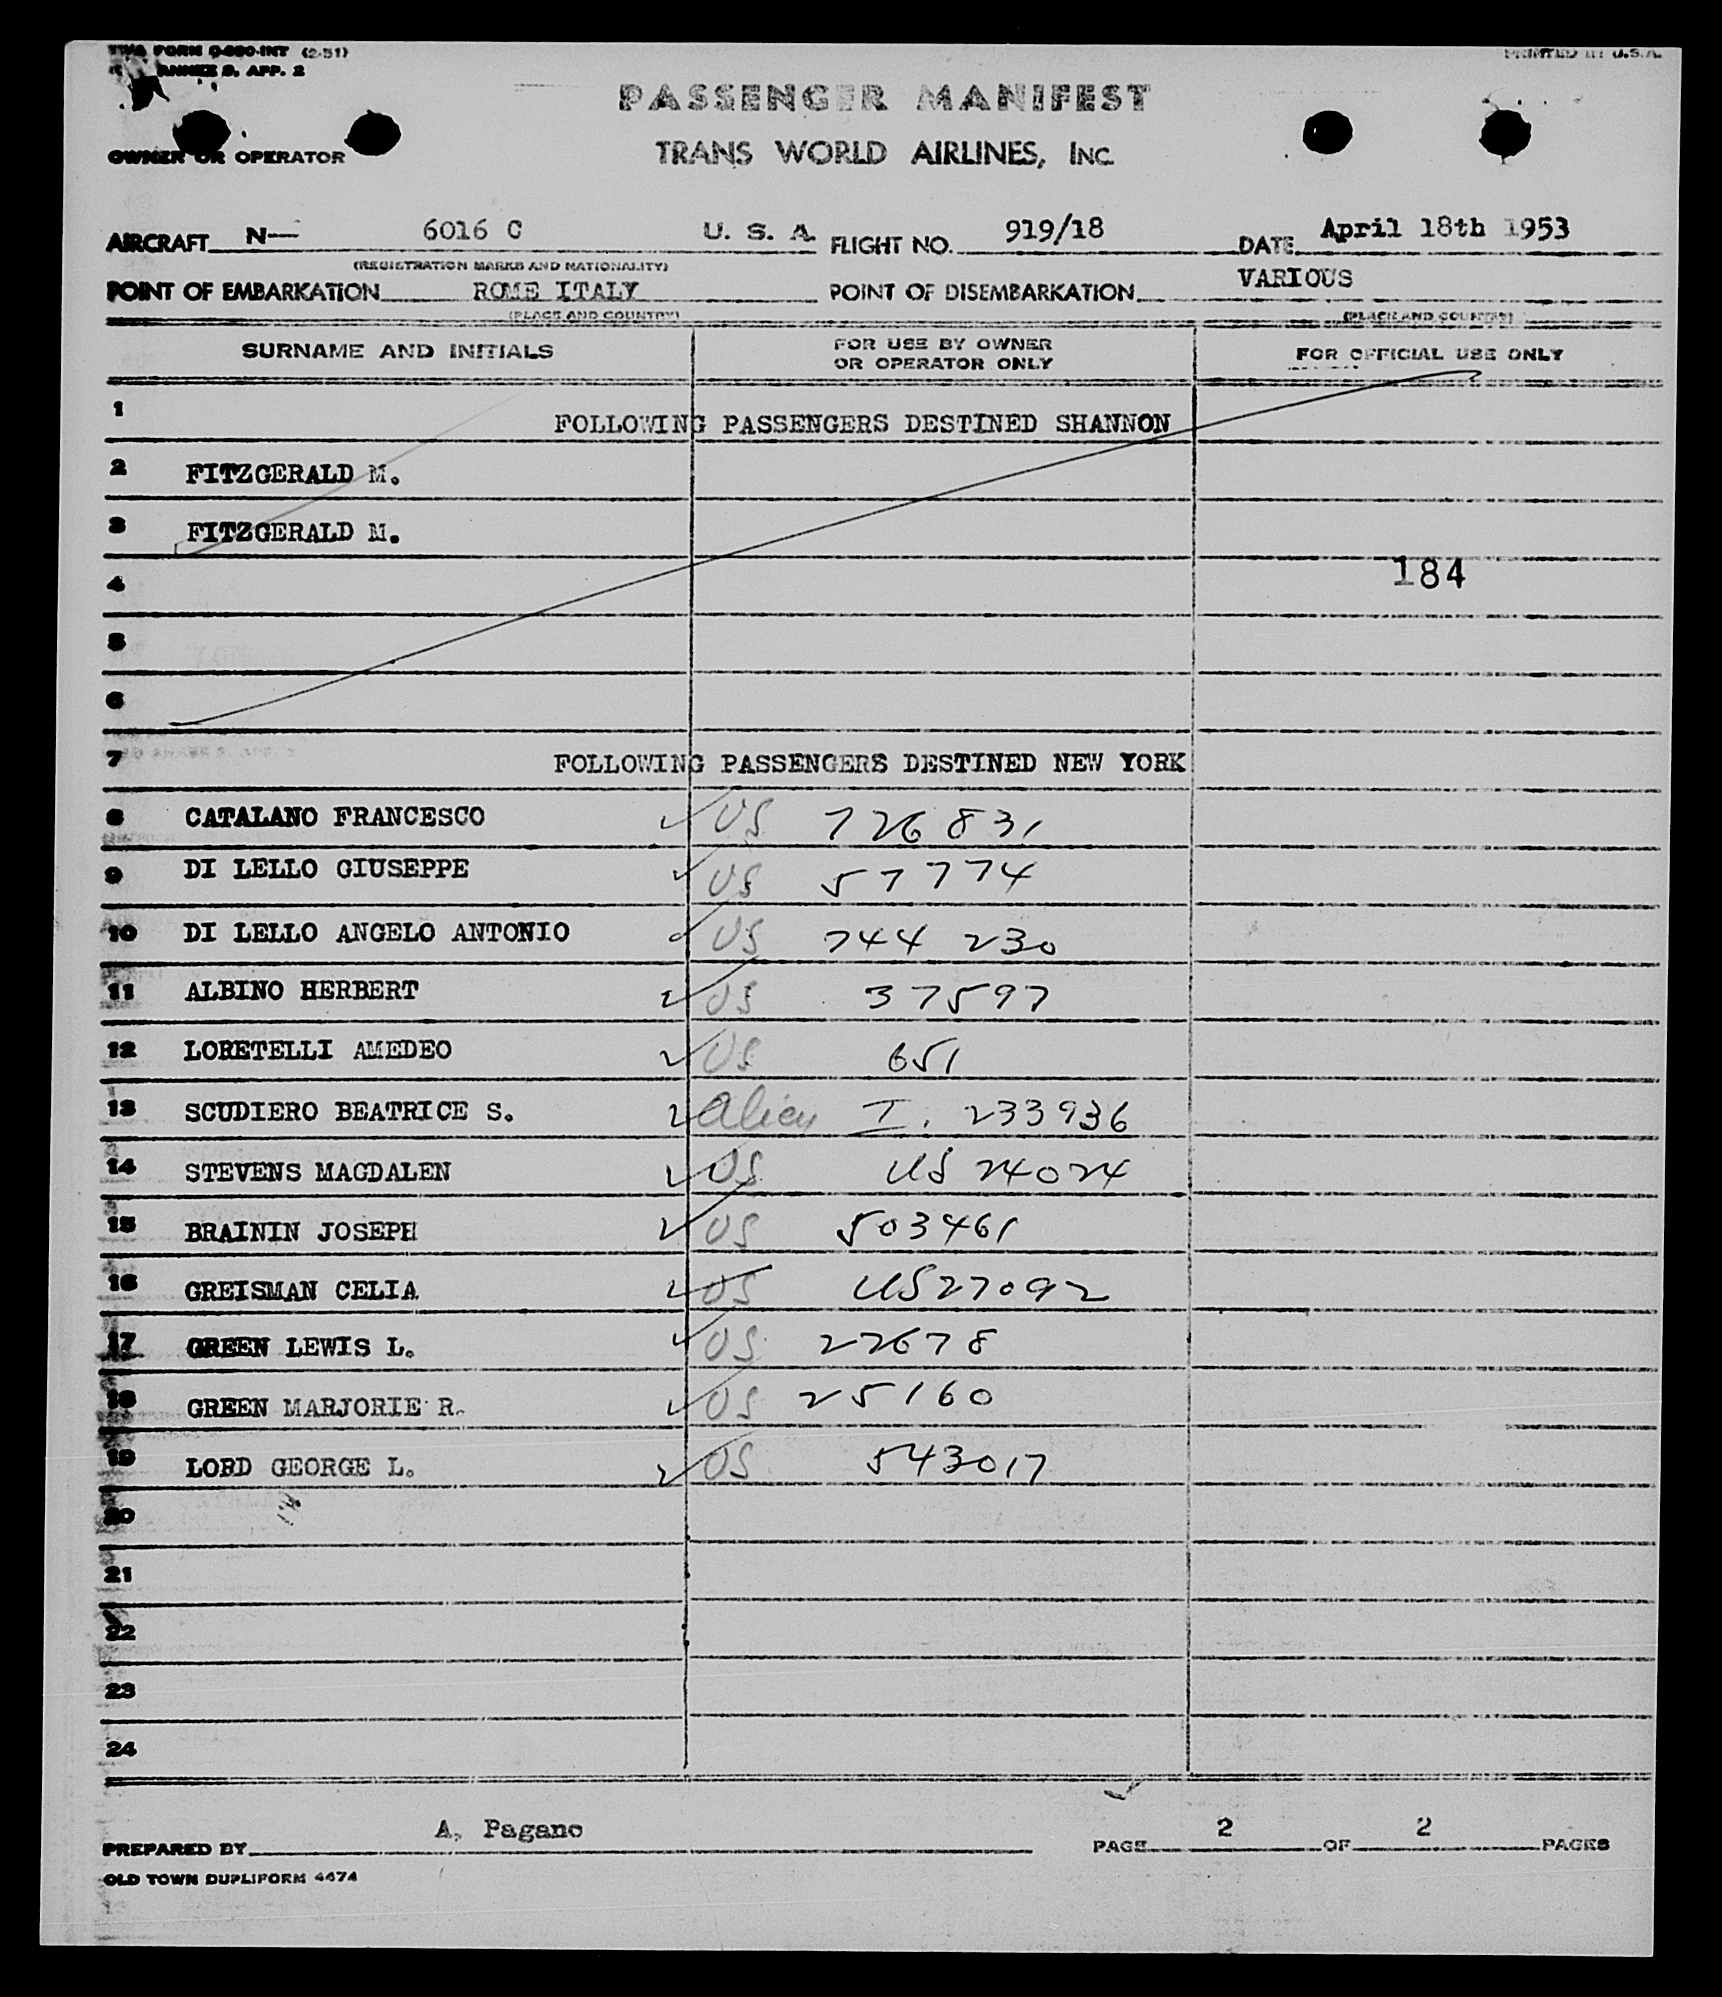 TWA FORM O-880-INT (2-51)
ANNEX 9, APP. 2
PRINTED IN U.S.A.
PASSENGER MANIFEST
OWNER OR OPERATOR
TRANS WORLD AIRLINES, INC.
AIRCRAFT N— 6016 C U. S. A. FLIGHT NO. 919/18 DATE April 18th 1953
(REGISTRATION MARKS AND NATIONALITY)
POINT OF EMBARKATION ROME ITALY POINT OF DISEMBARKATION VARIOUS
(PLACE AND COUNTRY) (PLACE AND COUNTRY)
SURNAME AND INITIALS FOR USE BY OWNER OR OPERATOR ONLY FOR OFFICIAL USE ONLY
1 FOLLOWING PASSENGERS DESTINED SHANNON
2 FITZGERALD M.
3 FITZGERALD M.
4 184
5
6
7 FOLLOWING PASSENGERS DESTINED NEW YORK
8 CATALANO FRANCESCO ✓ US 726831
9 DI LELLO GIUSEPPE ✓ US 57774
10 DI LELLO ANGELO ANTONIO ✓ US 744 230
11 ALBINO HERBERT ✓ US 37597
12 LORETELLI AMEDEO ✓ US 651
13 SCUDIERO BEATRICE S. ✓ alien I. 233936
14 STEVENS MAGDALEN ✓ US US 24024
15 BRAININ JOSEPH ✓ US 503461
16 GREISMAN CELIA ✓ US US27092
17 GREEN LEWIS L. ✓ US 22678
18 GREEN MARJORIE R. ✓ US 25160
19 LORD GEORGE L. ✓ US 543017
20
21
22
23
24
PREPARED BY A. Pagano PAGE 2 OF 2 PAGES
OLD TOWN DUPLIFORM 4474